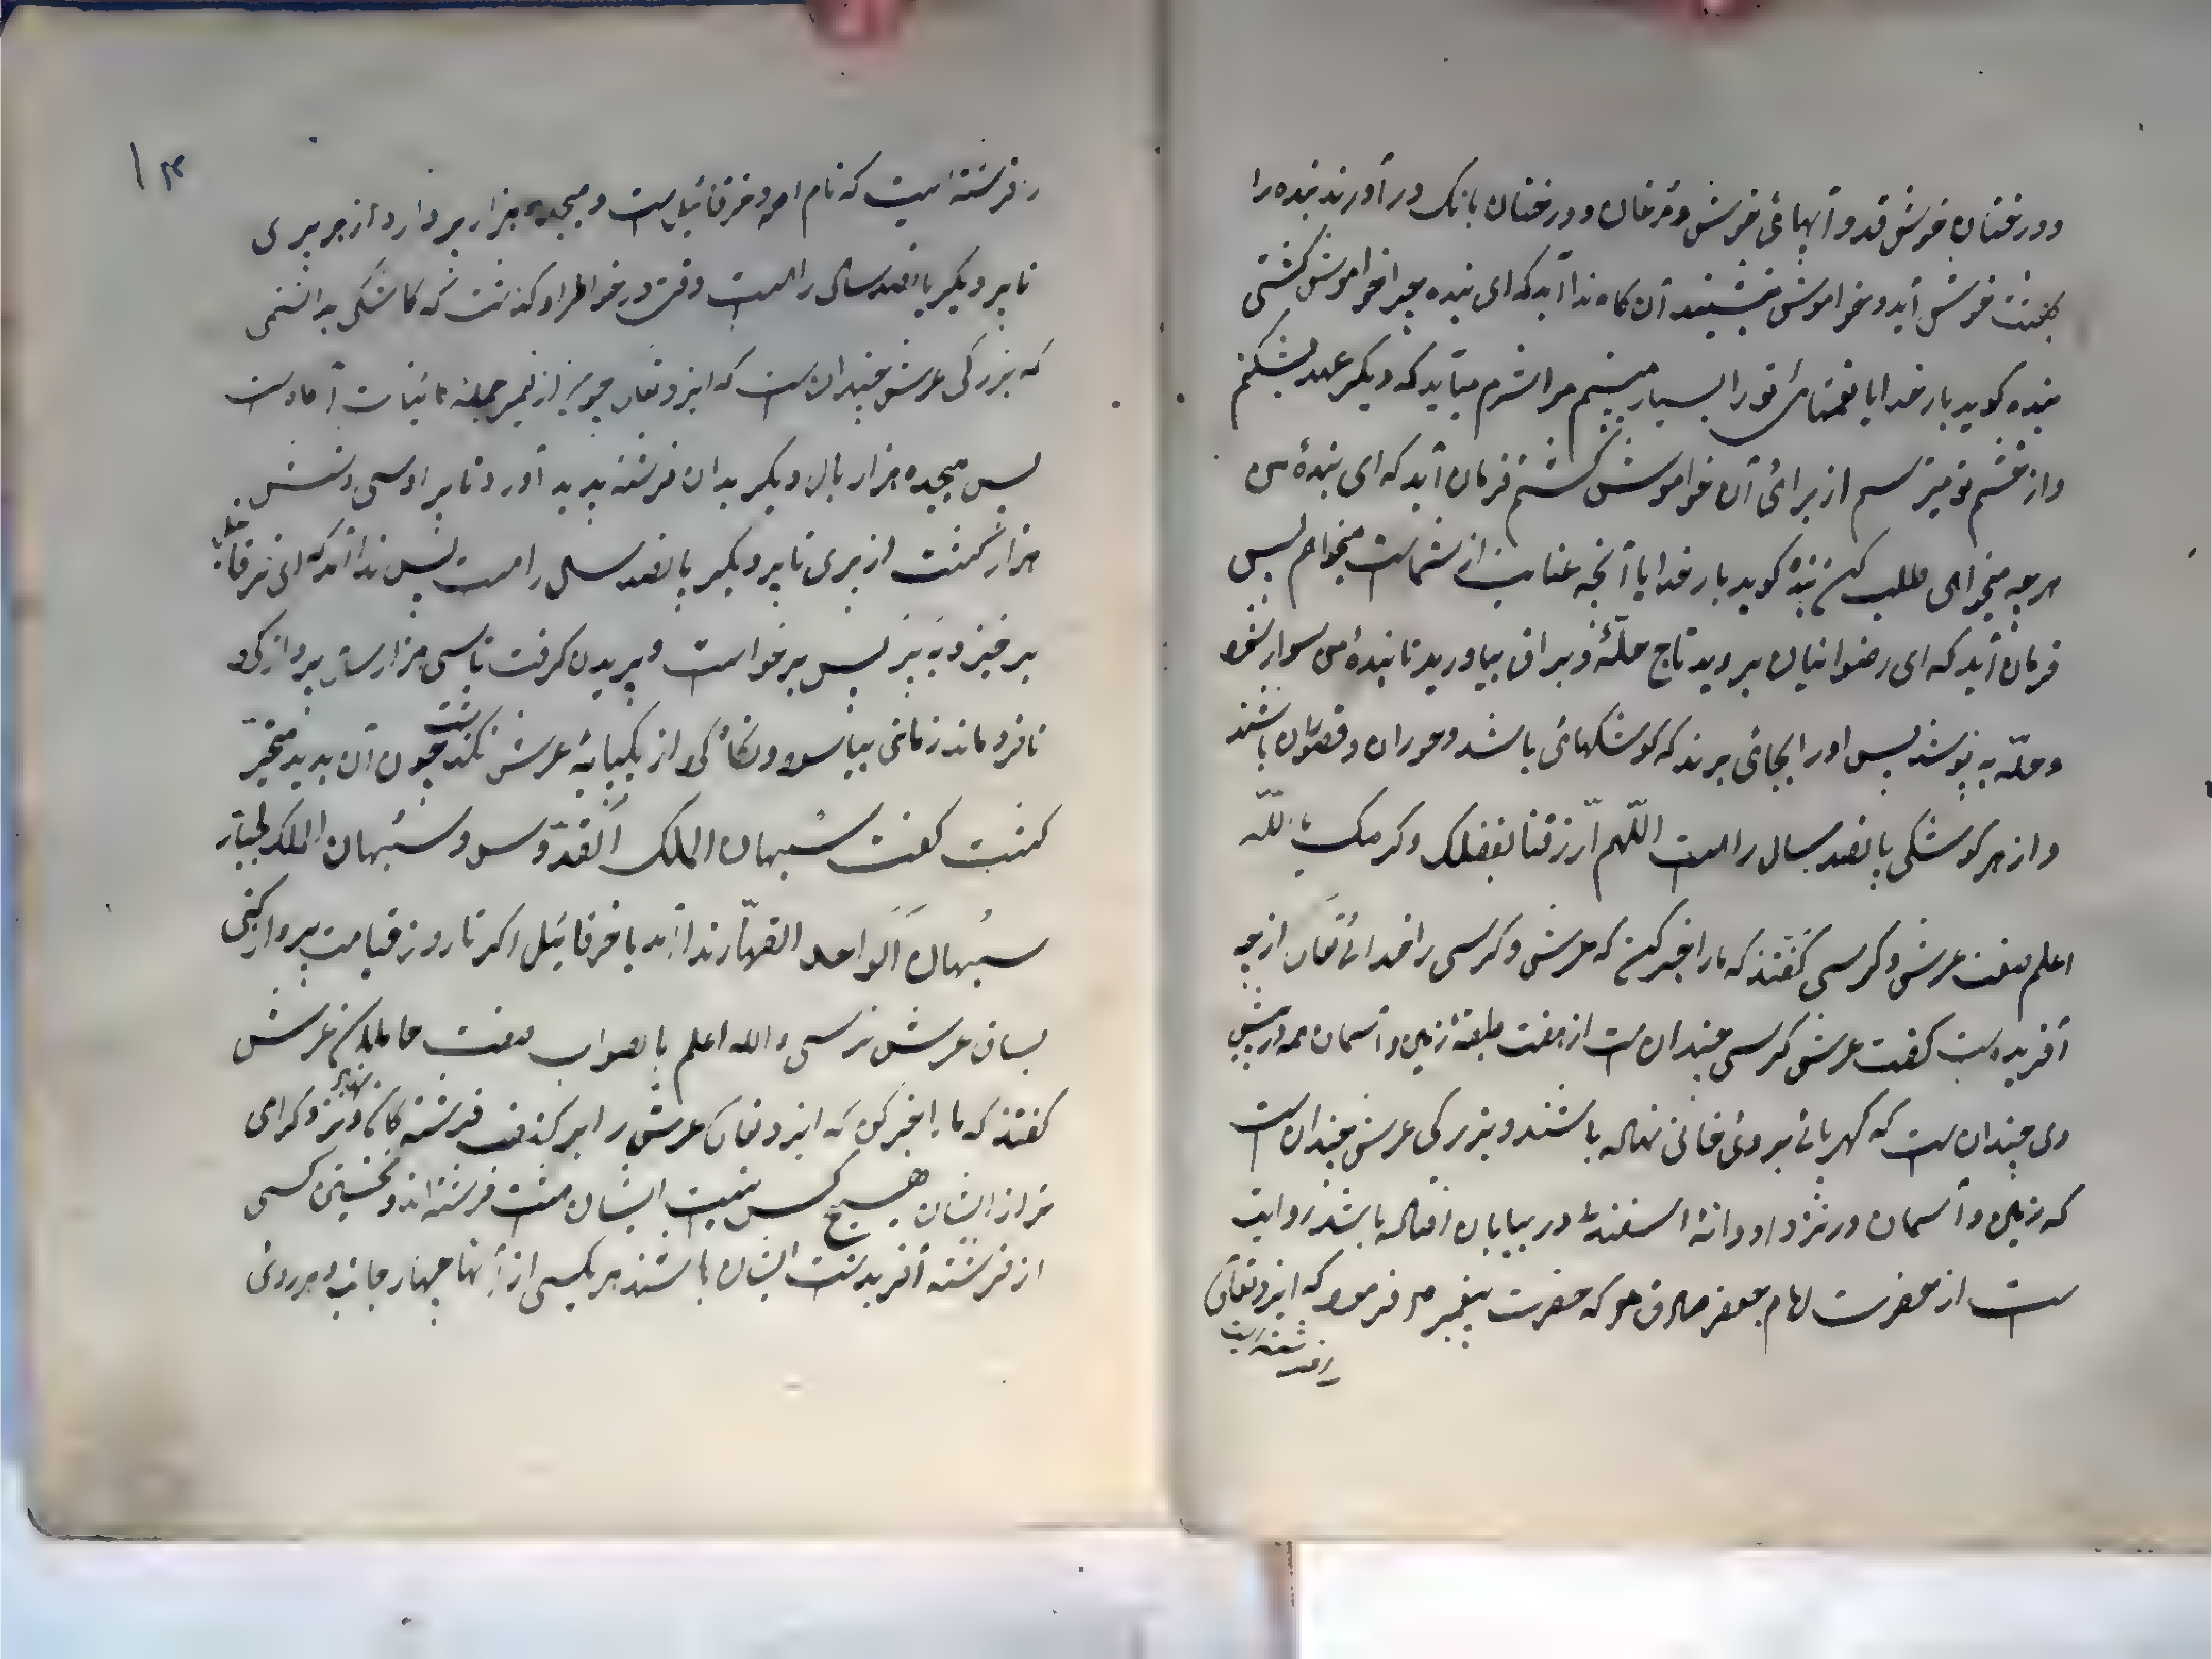 ودرختان خوش قد و آبهائی خوش و مرغان و درختان بانک درآورند بنده را
بهشت خوش آید و خواموش بنشیند آن کاه ندا آید که ای بنده چرا خواموش کشتی
بنده کوید بار خدایا نعمتهای تو را بسیار میبینم مرا شرم میآید که دیکر عهد بشکنم
و از خشم تو میترسم از برائی آن خواموش کشتم فرمان آید که ای بندۀ من
هر چه میخواهی طلب کن بنده کوید بار خدایا آنچه عنایت از شماست میخواهم پس
فرمان آید که ای رضوانیان بروید تاج حلّۀ و براق بیاورید تا بندۀ من سوار شود
و حلّه به پوشد پس او را بجائی برند که کوشکهائی باشد و حوران و قصوران باشند
و از هر کوشکی پانصد سال راهست اللّهم ارزقنا بفضلک و کرمک یا اللّه
اعلم صفت عرش و کرسی کفتند که ما را خبر کن که عرش و کرسی را خدائ تعالی از چه
آفریده است کفت عرش کرسی چندان است از هفت طبقۀ زمین و آسمان همه در پیش
وی چندان است که کهربائ بر وی خانی نهاله باشند و بزرکی عرش چندان است
که زمین و آسمان در نزد او دانۀ اسفند در بیابان افتاله باشد روایت
ست از حضرت امام جعفر صادق ع که حضرت پیغمبر ص فرمود که ایزد تعالی
را فرشته ایست
۱۳
را فرشته ایست که نام او خرقائیل است و هیجده هزار پر دارد از هر پری
تا پر دیکر پانصد سال راهست وقتی در خواطر او کذشت که کاشکی بدانستمی
که بزرکی عرش چندان است که ایزد تعالی جمله کائنات
پس هیجده هزار بال دیکر بدان فرشته پدید آورد تا پر او سی و شش
هزار کشت از پری تا پر دیکر پانصد سال راهست پس ندا آمد که ای خرقائیل
برخیز و به پر پس برخواست و پریدن کرفت تا سی هزار سال پرواز کرد
تا فرو ماند زمانی بیاسود و نکاه کرد از یکپایۀ عرش نکذشت چون آن بدید متحیّر
کشت کفت سبهان الملک القدّوس و سبهان الملک الجبّار
سبهان الواحد القهّار ندا آمد یا خرقائیل اکر تا روز قیامت پرواز کنی
بساق عرش نرسی و الله اعلم بالصواب صفت حاملان عرش
کفتند که ما را خبر کوی که ایزد تعالی عرش را بر کذفت فرشته کان نهاد و نزد کرامی
تر از ایشان هیچ کس نیست ایشان هشت فرشته اند و نخستین کسی
از فرشته آفرید شت ایشان باشند هر یکسی از آنها چهار جانب و هر روئی